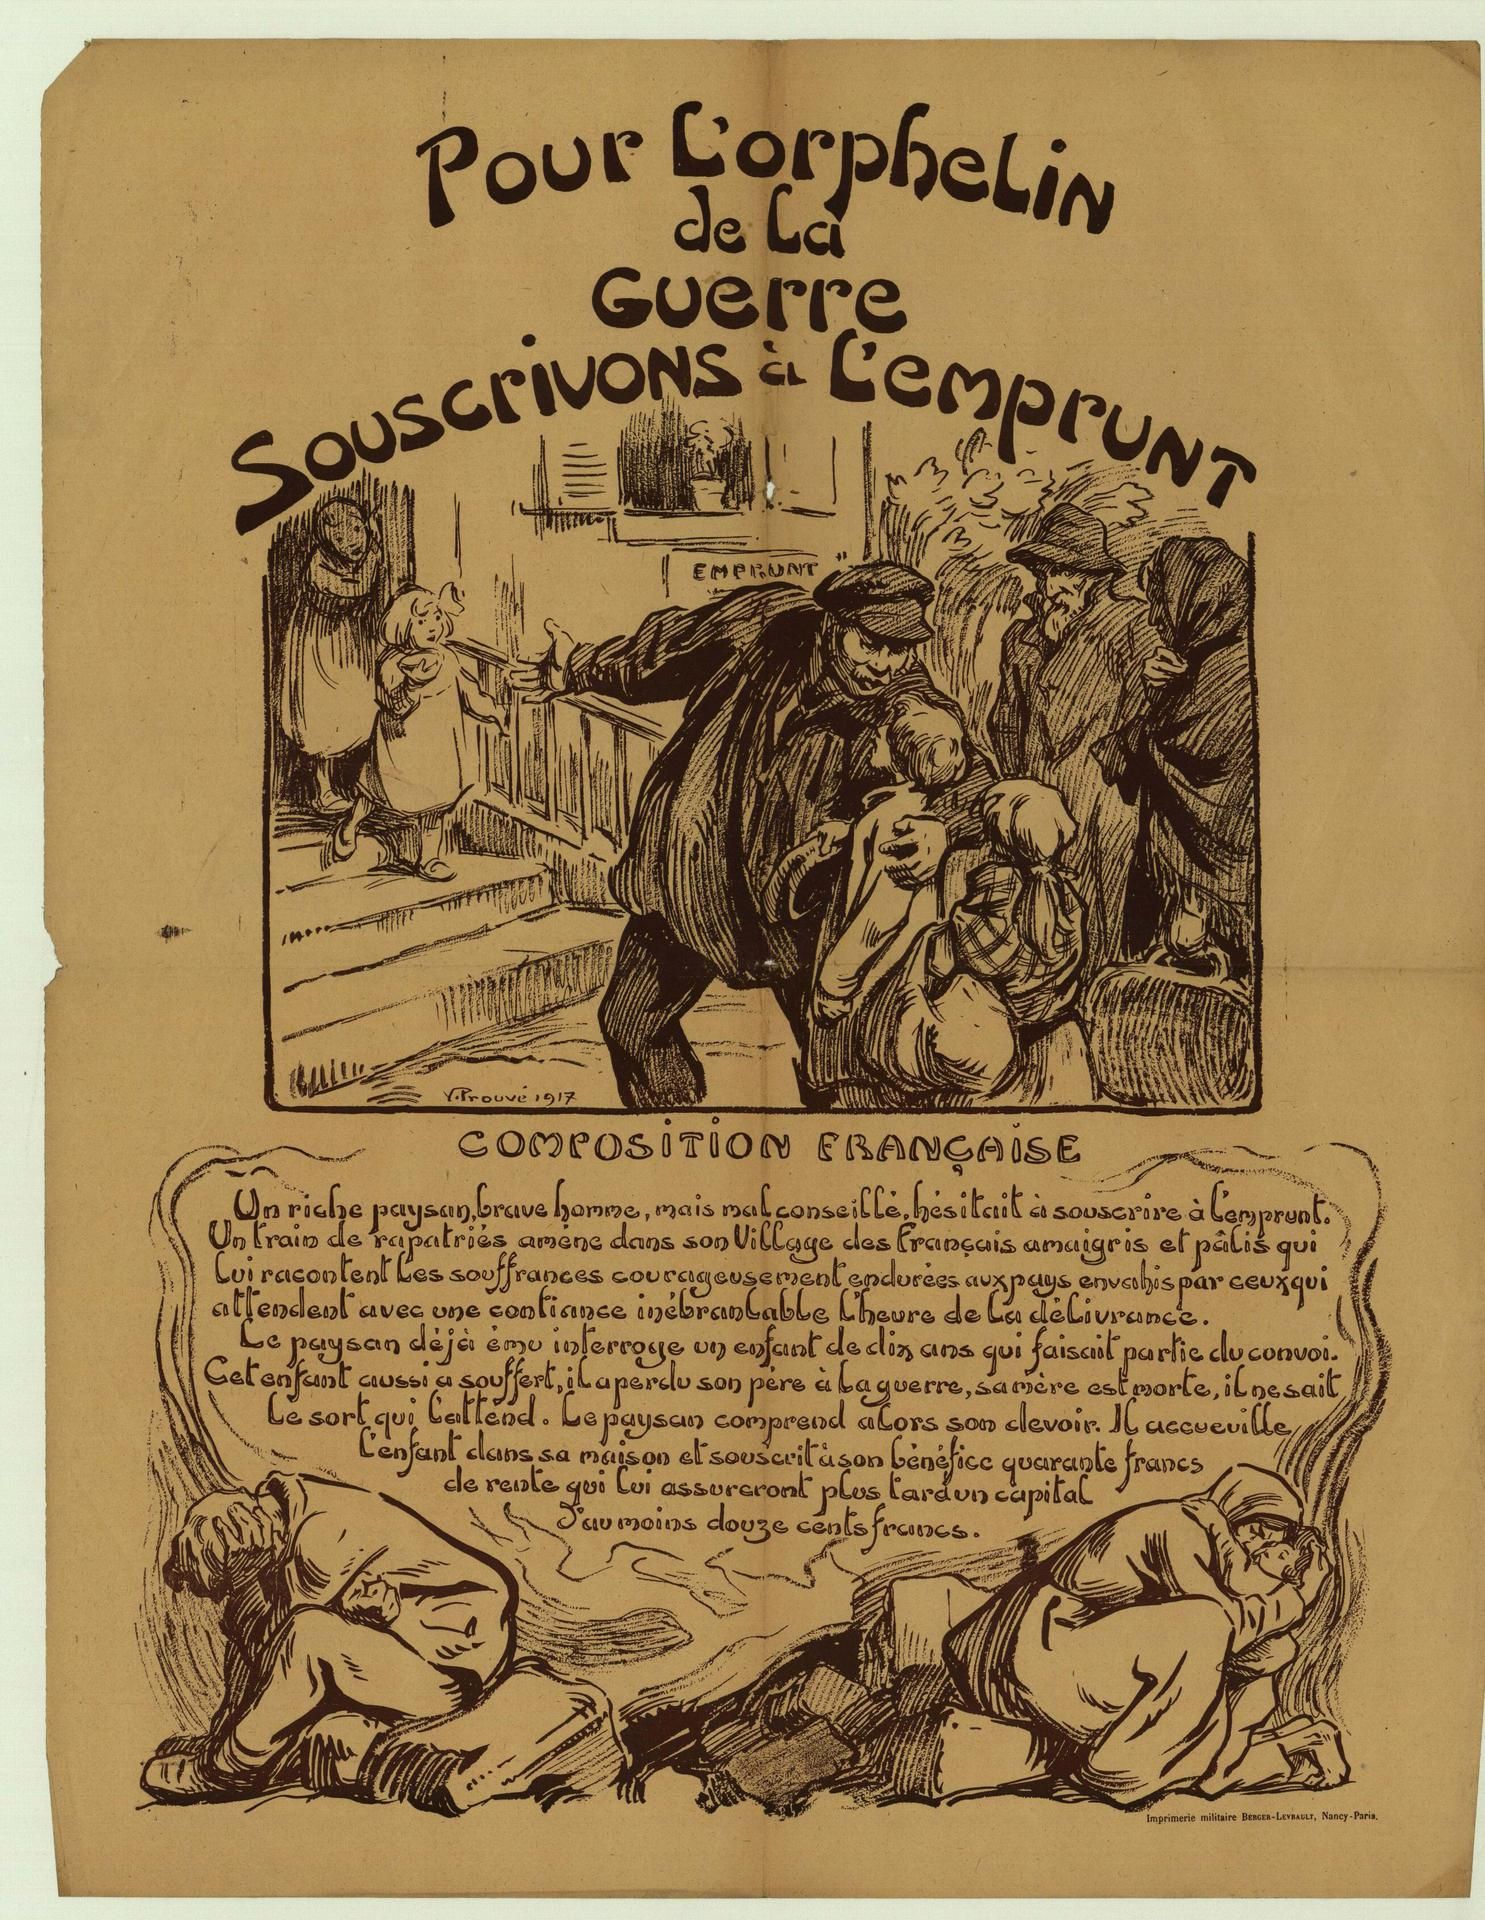 Pour L'orphelin
de La
Guerre
Souscrivons à L'emprunt
EMPRUNT
V. Prouvé 1917
COMPOSITION FRANÇAISE
Un riche paysan, brave homme, mais mal conseillé, hésitait à souscrire à l'emprunt.
Un train de rapatriés amène dans son Village des Français amaigris et pâlis qui
Lui racontent les souffrances courageusement endurées aux pays envahis par ceux qui
attendent avec une confiance inébranlable l'heure de la délivrance.
Le paysan déjà ému interroge un enfant de dix ans qui faisait partie du convoi.
Cet enfant aussi a souffert, il a perdu son père à la guerre, sa mère est morte, il ne sait
le sort qui l'attend. Le paysan comprend alors son devoir. Il accueuille
l'enfant dans sa maison et souscrit à son bénéfice quarante francs
de rente qui lui assureront plus tard un capital
d'au moins douze cents francs.
Imprimerie militaire BERGER-LEVRAULT, Nancy-Paris.